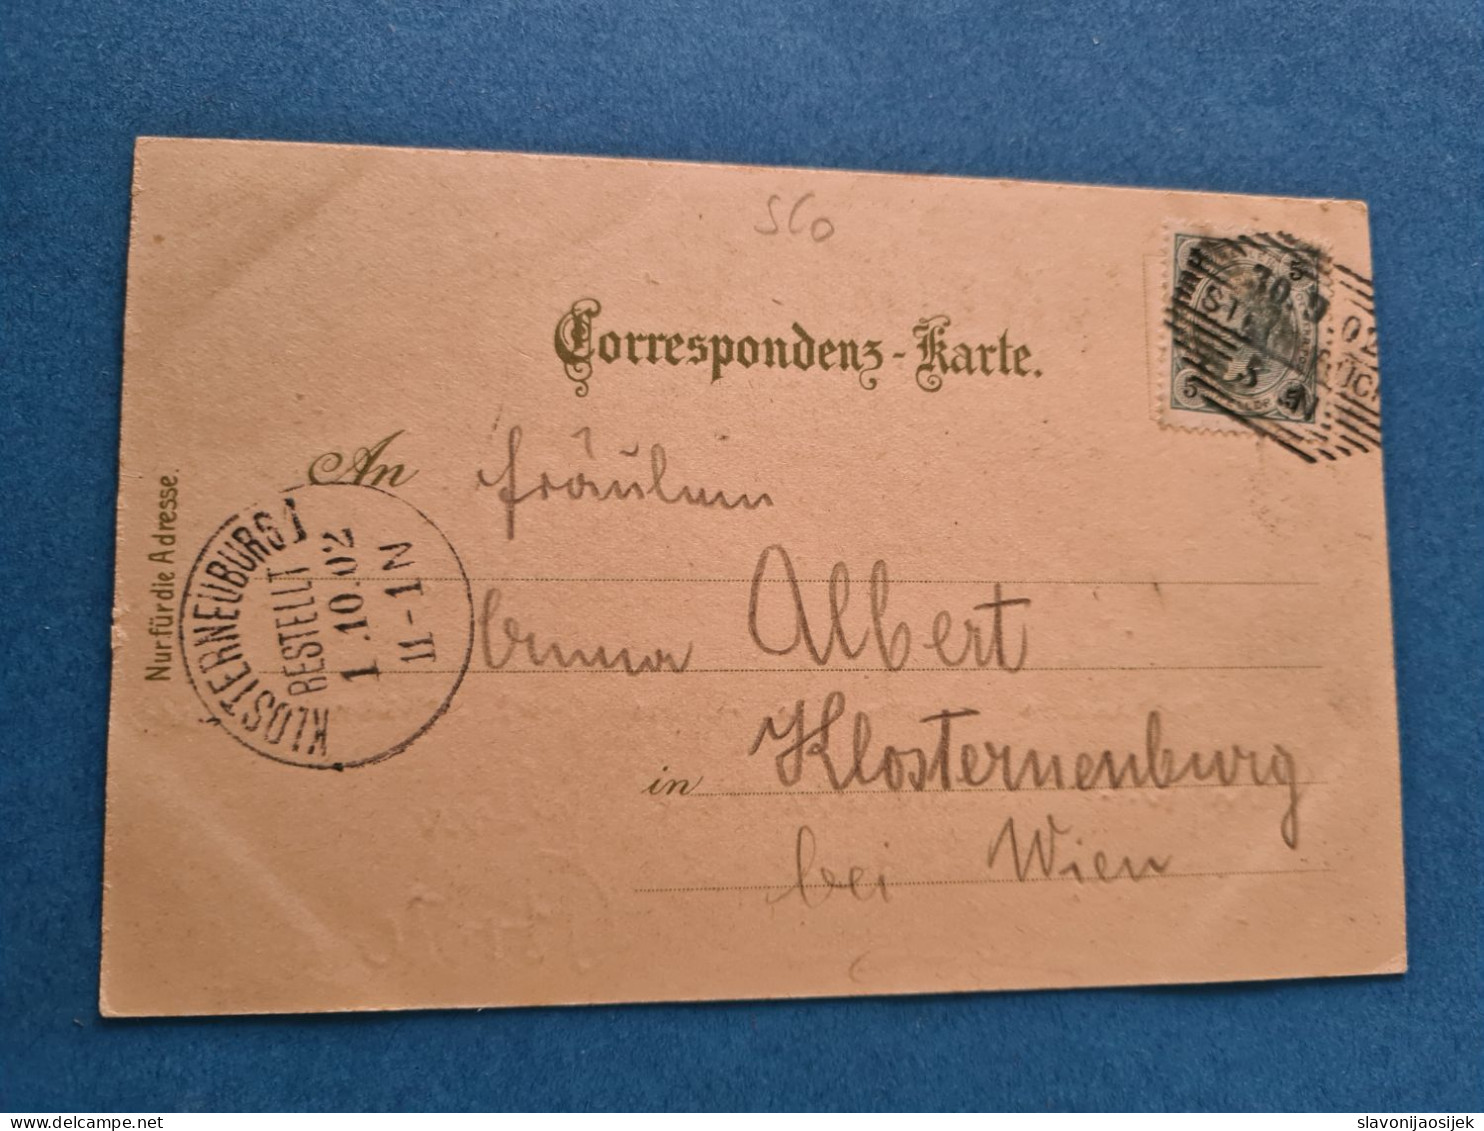 560
Correspondenz-Karte.
5 5
30.9.02
5 N
An Fräulein
Nur für die Adresse.
KLOSTERNEUBURG 1
BESTELLT
1.10.02
11-1N
Emma Albert
in Klosterneuburg
bei Wien
slavonijaosijek